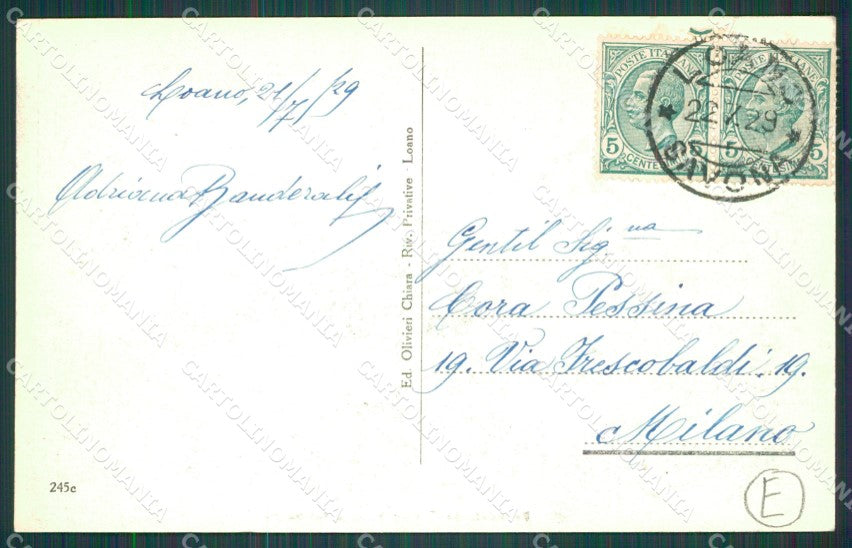 Loano, 21/7/29
Adriana Banderali
Ed. Olivieri Chiara - Riv. Privative - Loano
245c
POSTE ITALIANE
5 CENTESIMI 5
POSTE ITALIANE
5 CENTESIMI 5
LOANO
22.7.29
SAVONA
Gentil Signa
Cora Pessina
19. Via Frescobaldi. 19.
Milano
E
CARTOLINOMANIA